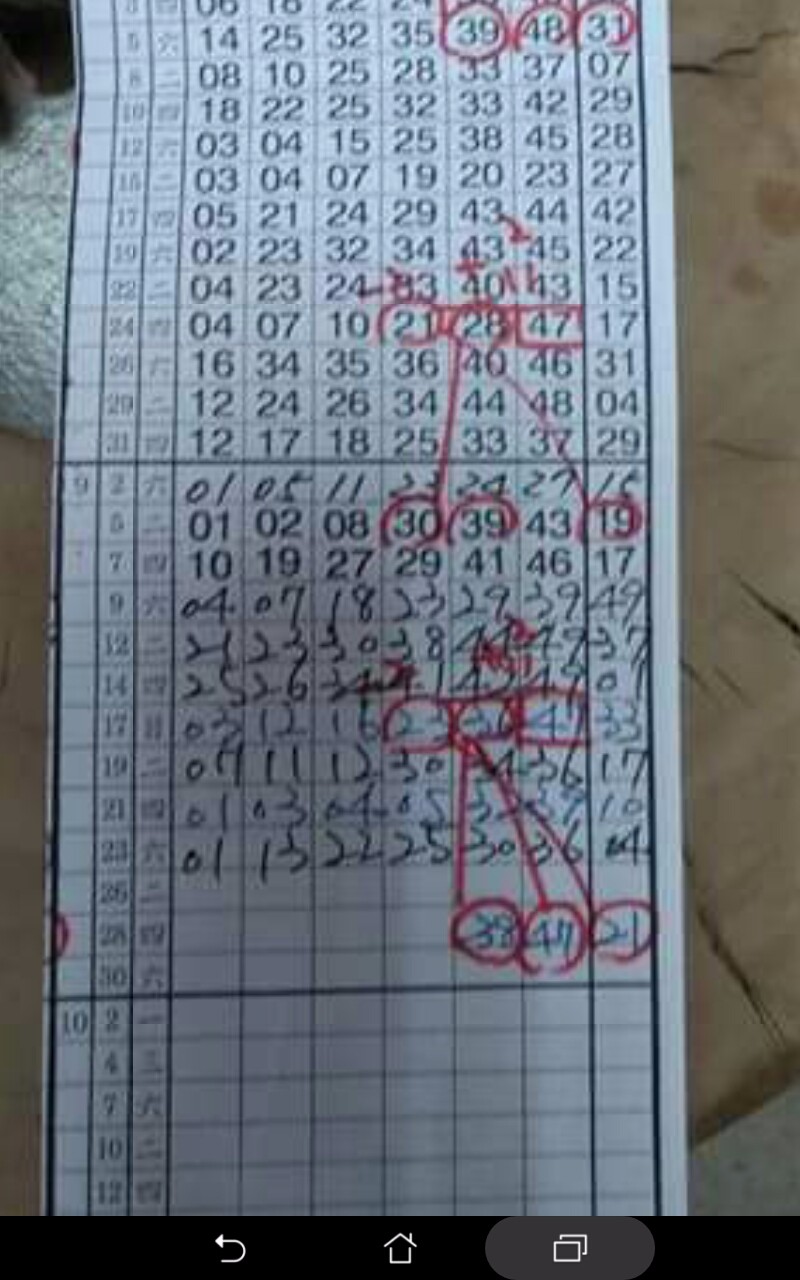 06 18 22 24
5 六 14 25 32 35 39 48 31
8 二 08 10 25 28 33 37 07
10 四 18 22 25 32 33 42 29
12 六 03 04 15 25 38 45 28
15 二 03 04 07 19 20 23 27
17 四 05 21 24 29 43 44 42
2
19 六 02 23 32 34 43 45 22
22 二 04 23 24 33 40 43 15
24 四 04 07 10 21 28 47 17
26 六 16 34 35 36 40 46 31
29 二 12 24 26 34 44 48 04
31 四 12 17 18 25 33 37 29
9 2 六 01 05 11 23 24 27 15
5 二 01 02 08 30 39 43 19
7 四 10 19 27 29 41 46 17
9 六 04 07 18 23 29 39 49
12 二 21 23 30 38 44 49 37
14 四 25 26 34 41 42 49 07
17 日 03 12 16 23 30 47 33
19 二 07 11 12 30 34 36 17
21 四 01 03 04 05 32 39 10
23 六 01 13 22 25 30 36 04
26 二
28 四 38 47 21
30 六
10 2 一
4 三
7 六
10 二
12 四